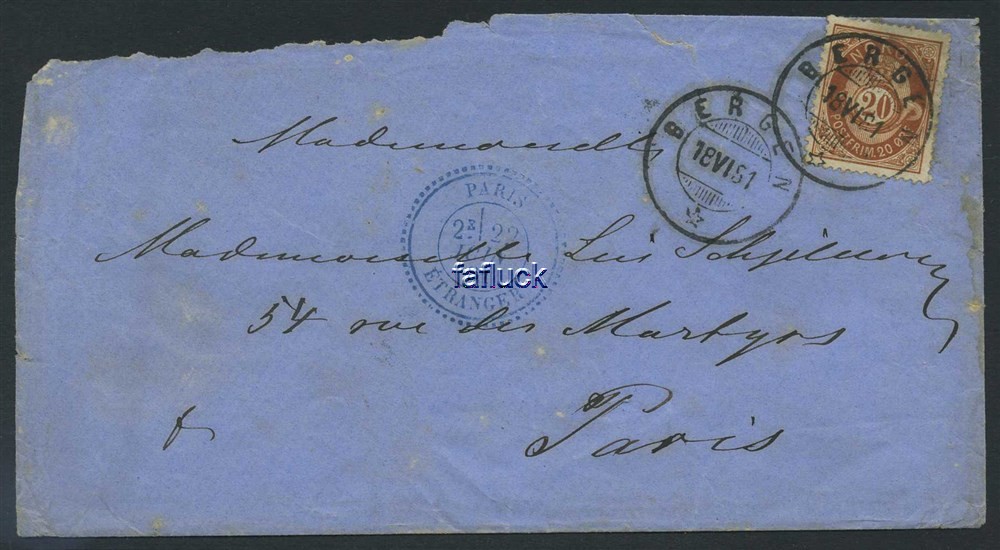 BERGEN
18 VI 81
BERGEN
18 VI 81
NOR
20
POSTFRIM. 20 ØRE
Mademoiselle
PARIS
2E 22
ETRANGER
fafluck
Mademoiselle
54 rue des Martyrs
Paris